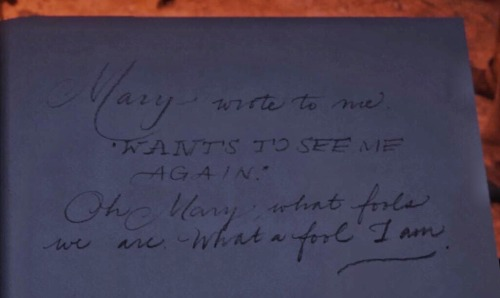 Mary wrote to me.
"WANTS TO SEE ME
AGAIN."
Oh Mary what fools
we are. What a fool I am.